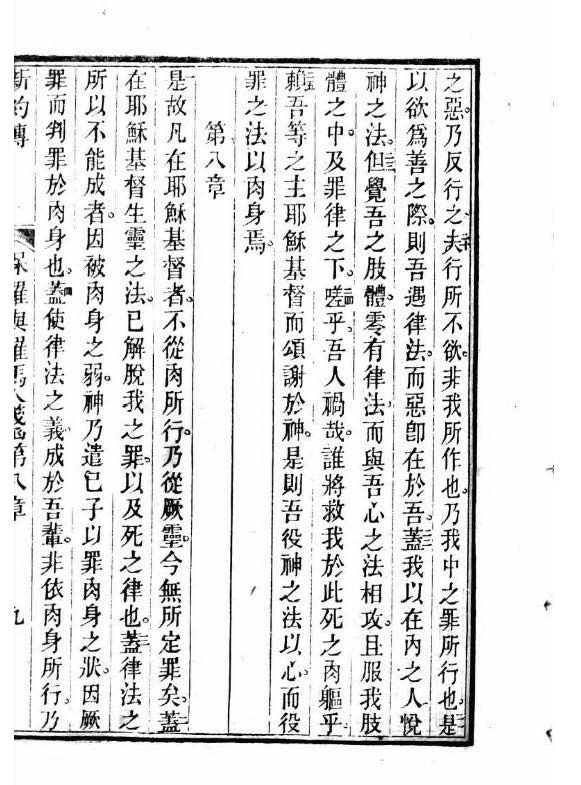 之惡。乃反行之。夫行所不欲。非我所作也。乃我中之罪所行也。是
以欲爲善之際。則吾遇律法。而惡卽在於吾。蓋我以在內之人悅
神之法。但覺吾之肢體。零有律法。而與吾心之法相攻。且服我肢
體之中。及罪律之下。嗟乎。吾人禍哉。誰將救我於此死之肉軀乎。
賴吾等之主耶穌基督而頌謝於神。是則吾役神之法以心。而役
罪之法以肉身焉。
第八章
是故凡在耶穌基督者。不從肉所行。乃從厥靈。今無所定罪矣。蓋
在耶穌基督生靈之法。已解脫我之罪。以及死之律也。蓋律法之
所以不能成者。因被肉身之弱。神乃遣己子以罪肉身之狀。因厥
罪而判罪於肉身也。蓋使律法之義。成於吾輩。非依肉身所行。乃
新約傳 保羅與羅馬人箋 第八章 九